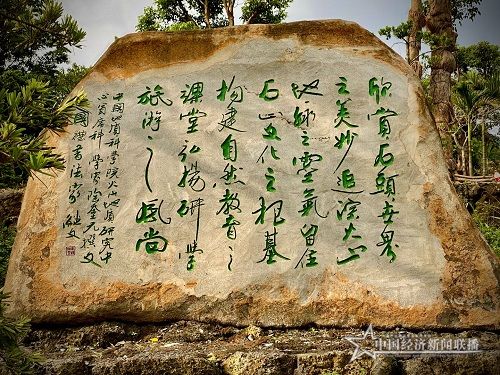 欣赏石頭世界
之美妙追溯火山
地球之靈氣留住
石山文化之根基
构建自然教育之
課堂弘揚研學
旅游之風尚
中國地質科學院火山地質研究中
心首席科學家陶奎元撰文
國禮書法家
中国经济新闻联播